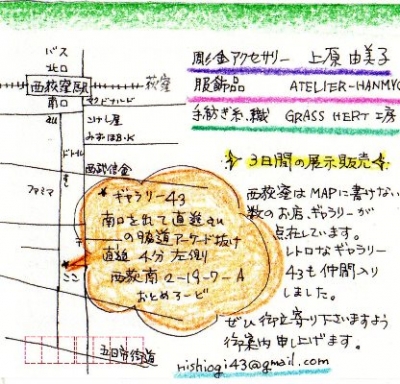 バス
北口
西荻窪駅
荻窪
南口
マクドナルド
こけし屋
みずほB・K
ドトール
西武信金
ファミマ
ここ
五日市街道
彫金アクセサリー 上原由美子
服飾品 ATELIER-HANMYO
手紡ぎ糸.織 GRASS HERT 工房
3日間の展示販売
ギャラリー43
南口を出て直進
の脇道アーケード抜け
直進 4分 左側
西荻南2-19-7-A
おとめろーど
西荻窪はMAPに書けない
数のお店、ギャラリーが
点在しています。
レトロなギャラリー
43も仲間入り
しました。
ぜひ御立寄り下さいますよう
御案内申し上げます。
nishiogi43@gmail.com